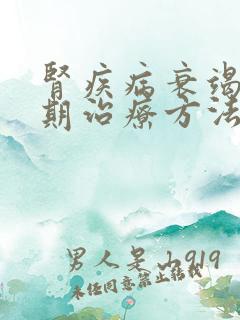 肾疾病衰竭
期治疗方法
男人是山919
未经同意禁止转载